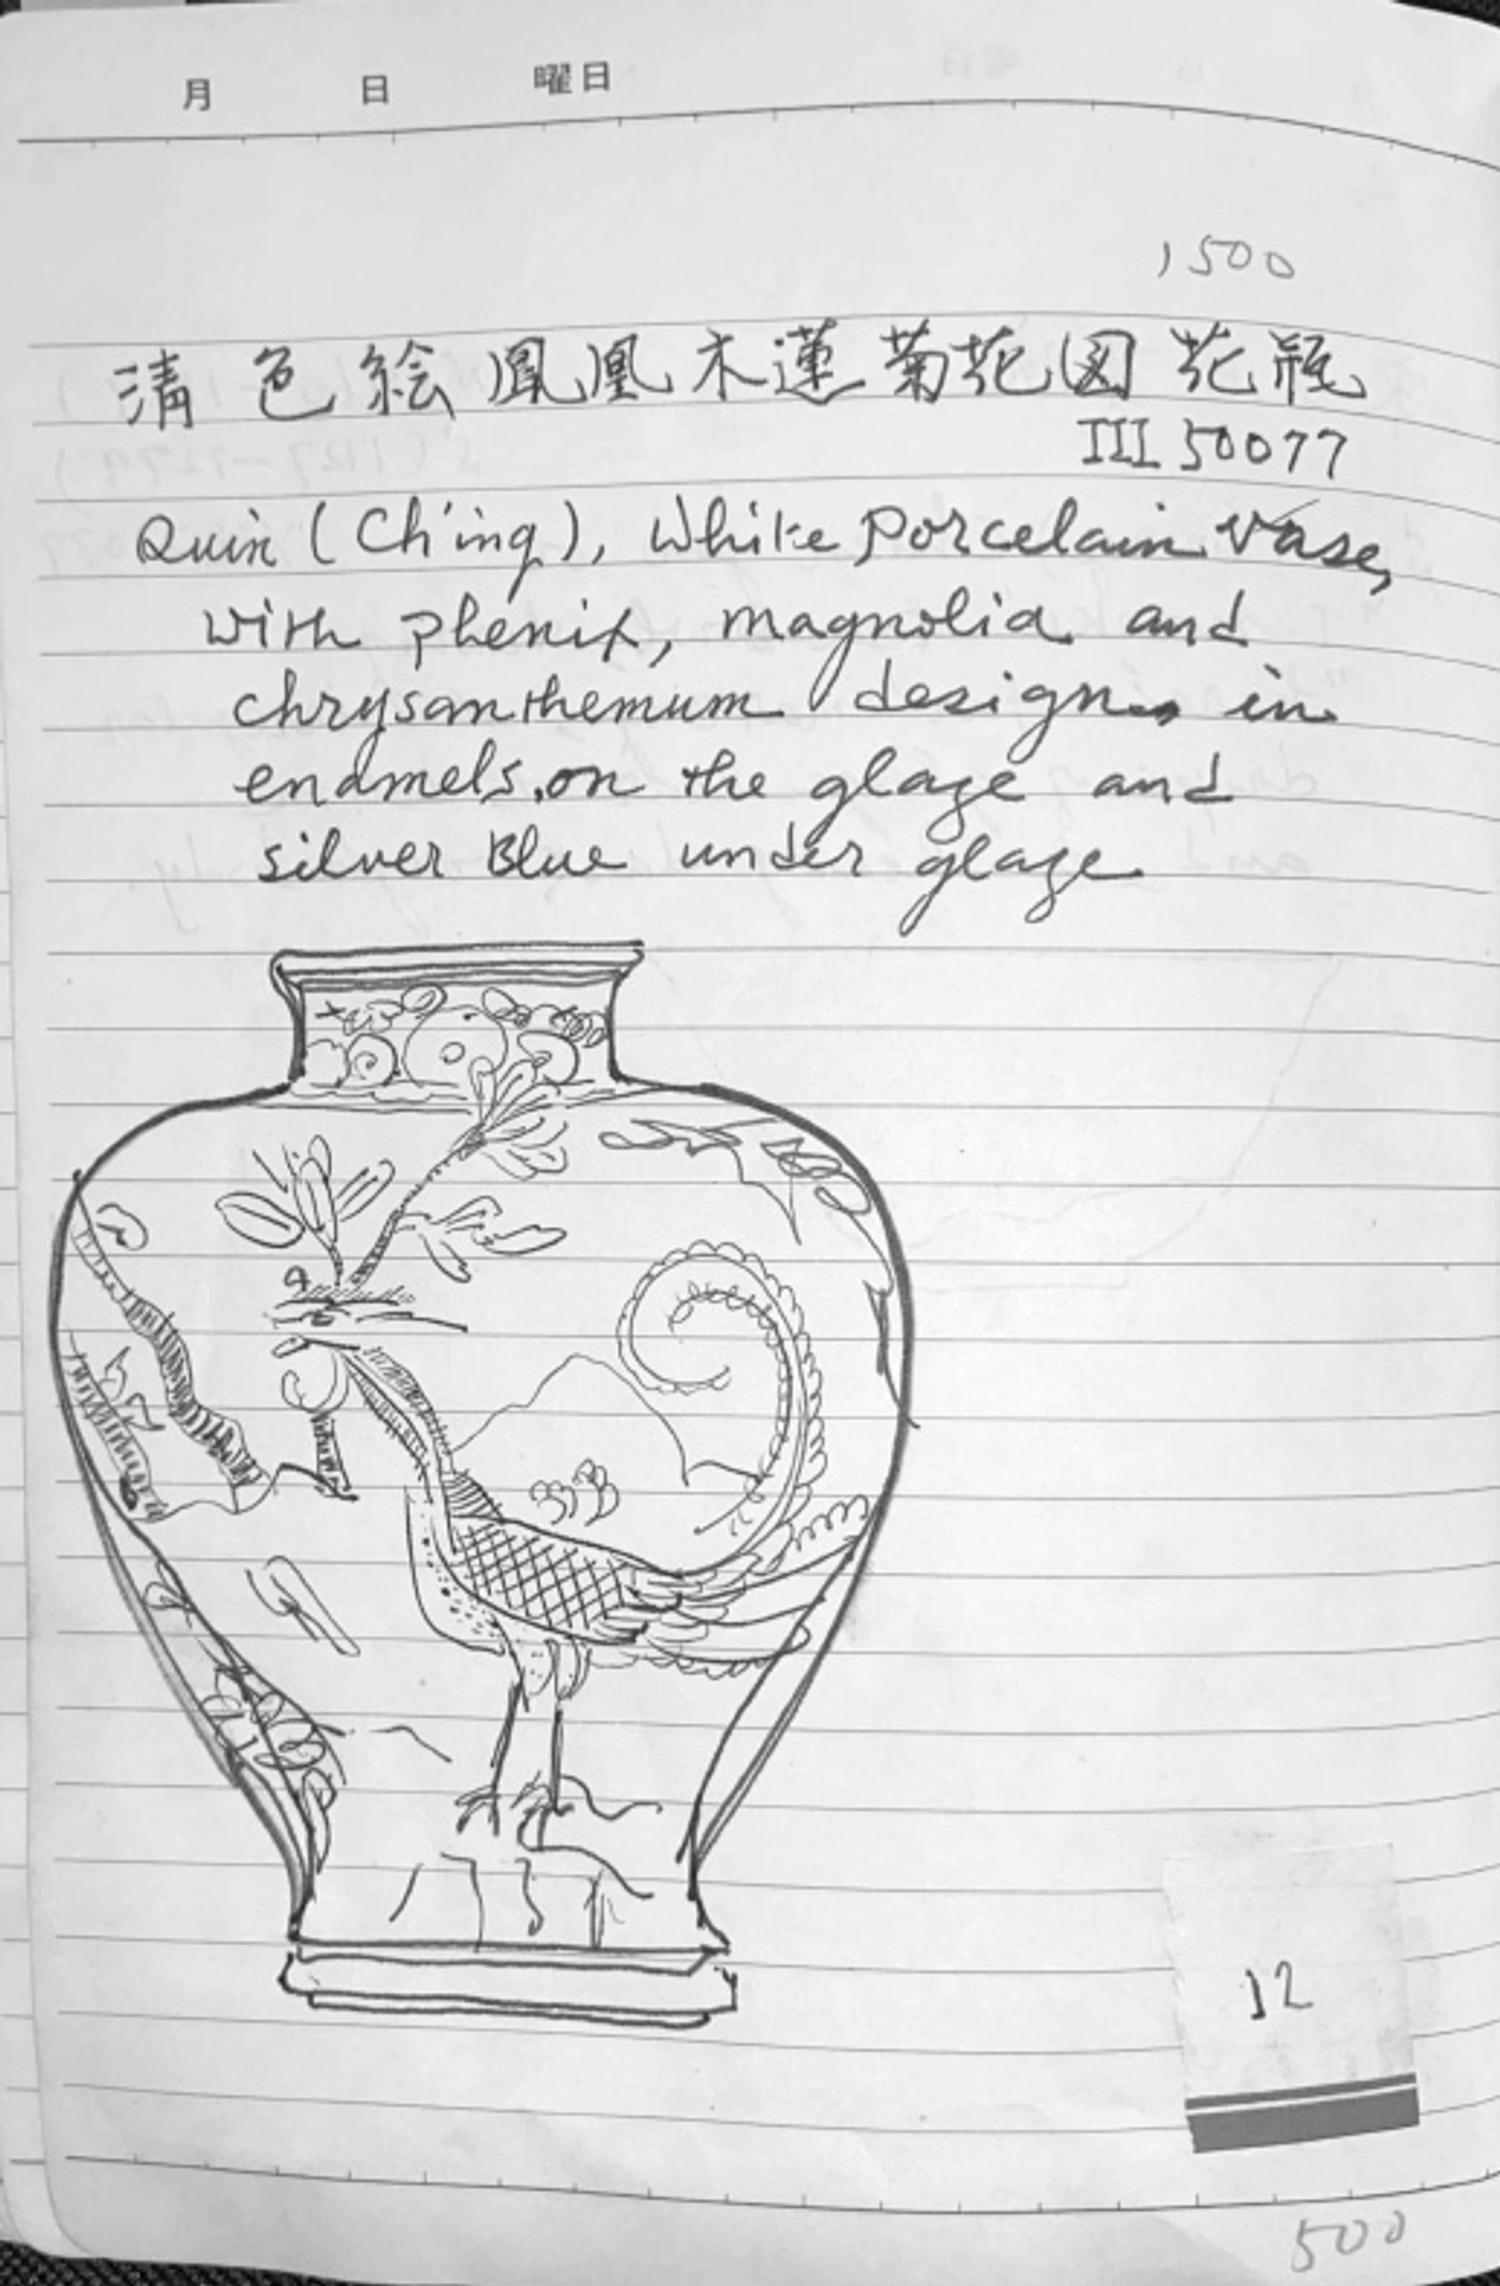 月 日 曜日
1500
清 色 絵 鳳凰木蓮菊花図 花瓶
III 50077
Quin (Ch'ing), White Porcelain Vase,
with phenix, magnolia and
chrysanthemum design in
enamels on the glaze and
silver Blue under glaze
12
500